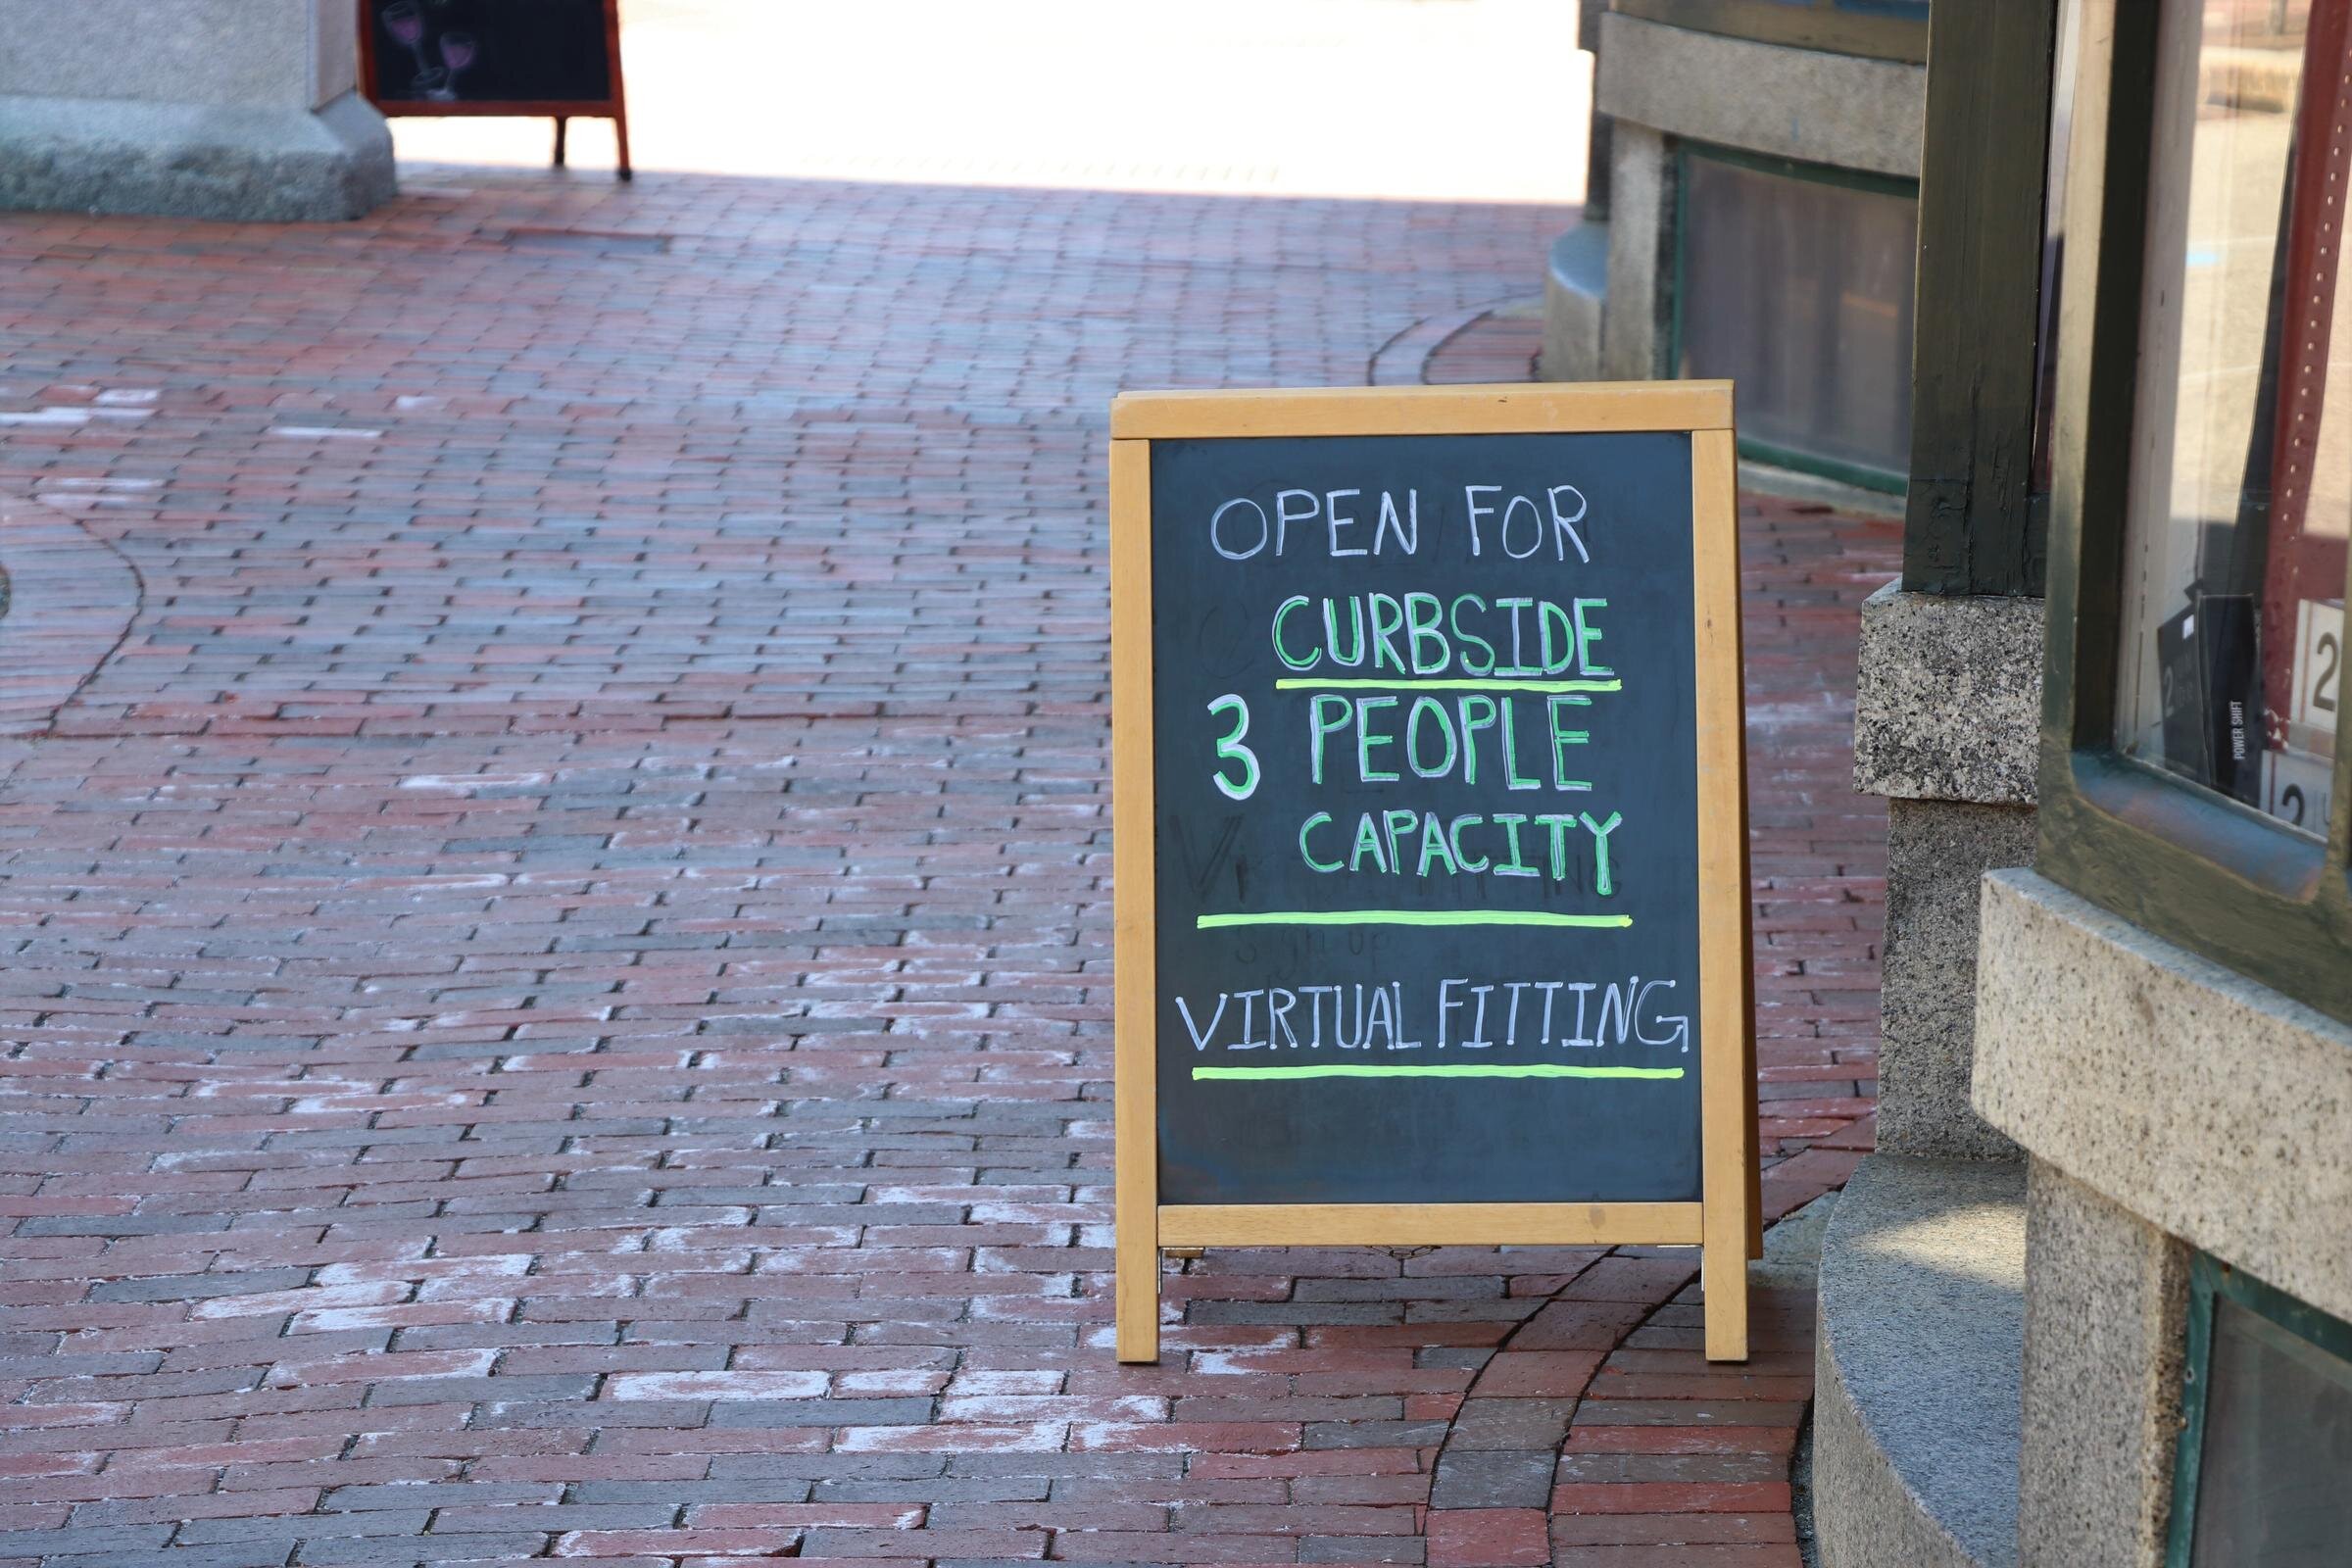 OPEN FOR
CURBSIDE
3 PEOPLE
CAPACITY
VIRTUAL FITTING
POWER SHIFT
2
2